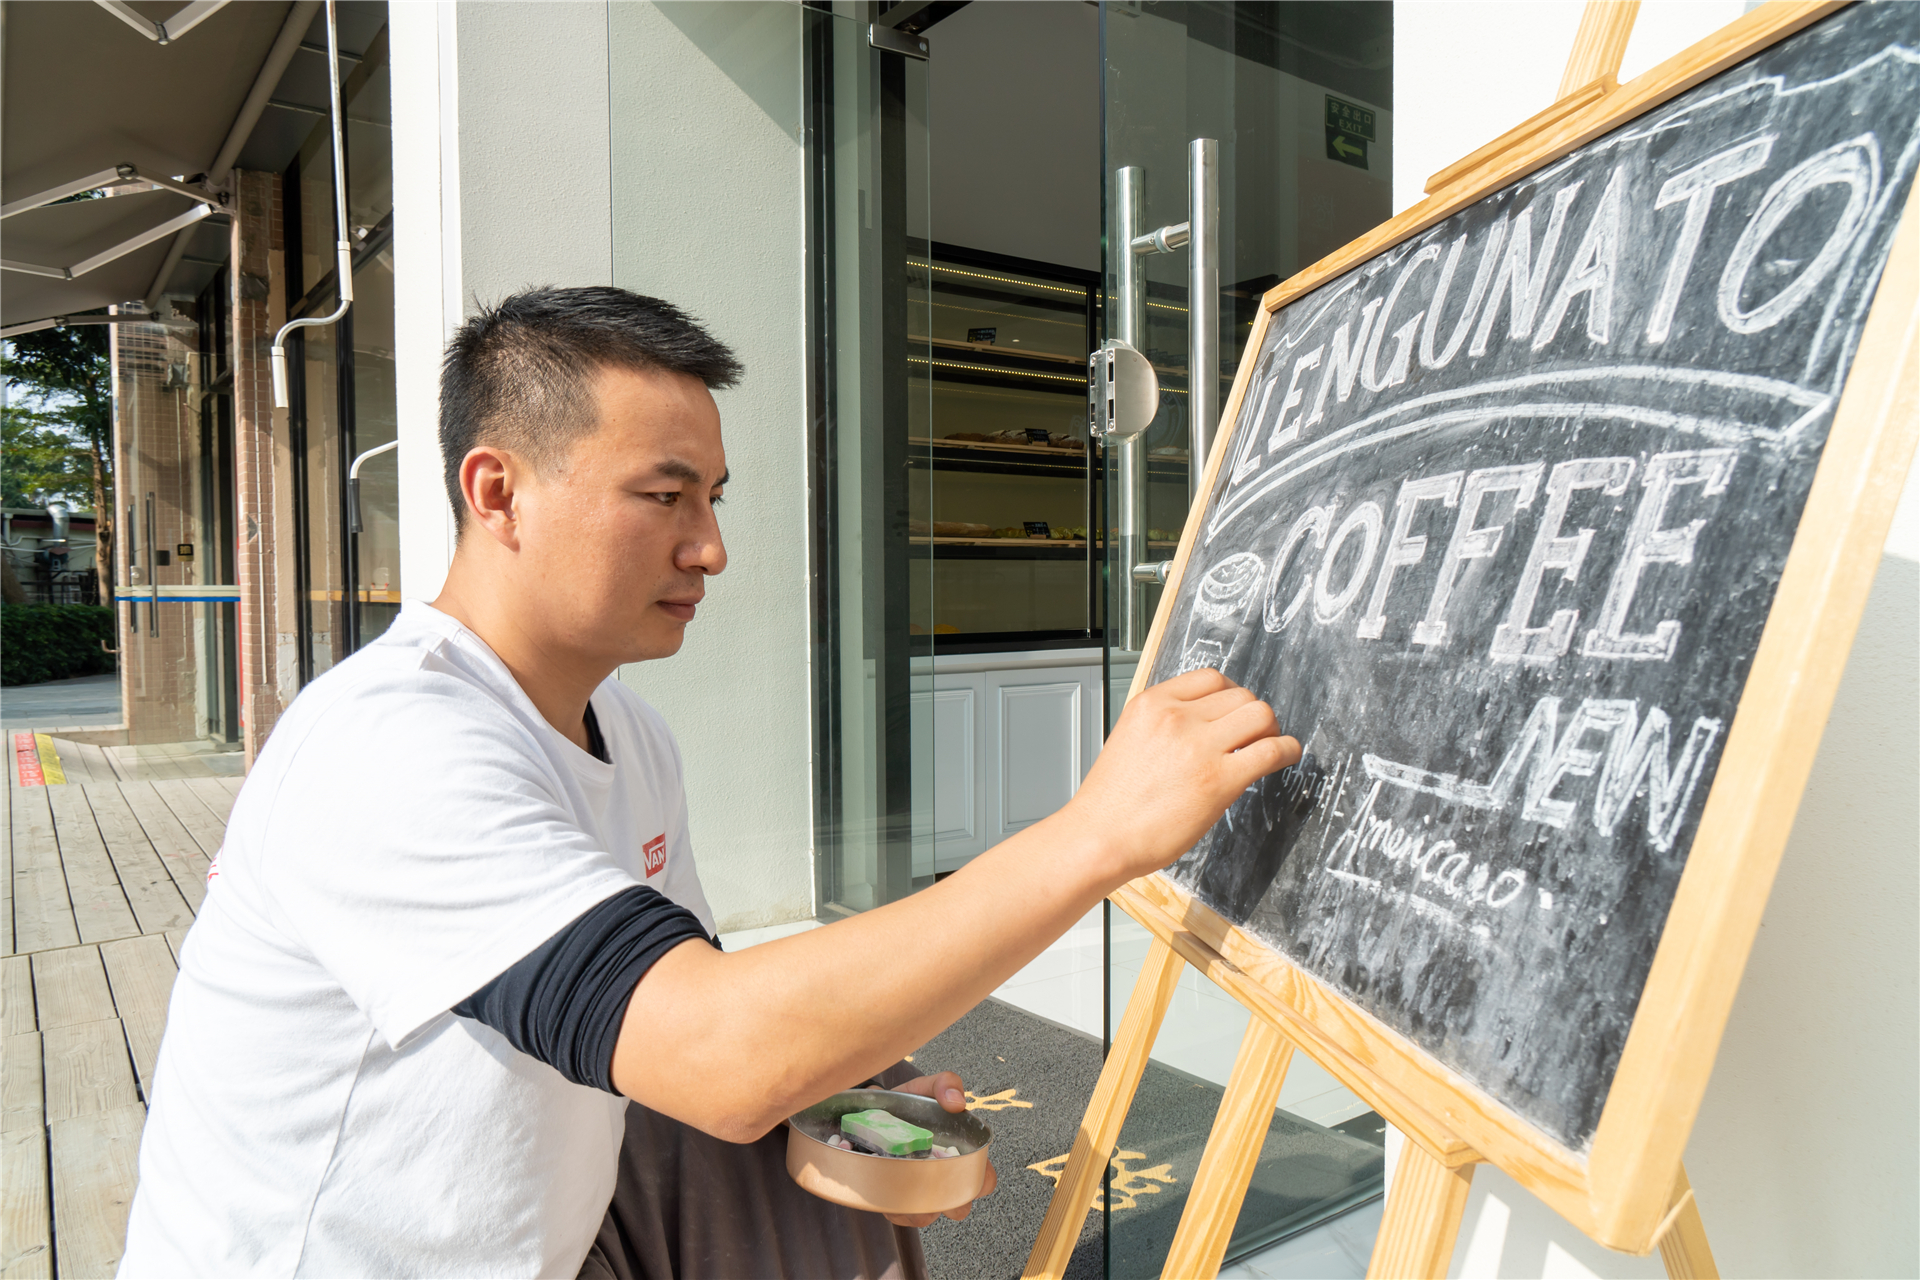 安全出口
EXIT
LENGUNATO
COFFEE
COFFEE
NEW
Americano.
VAN